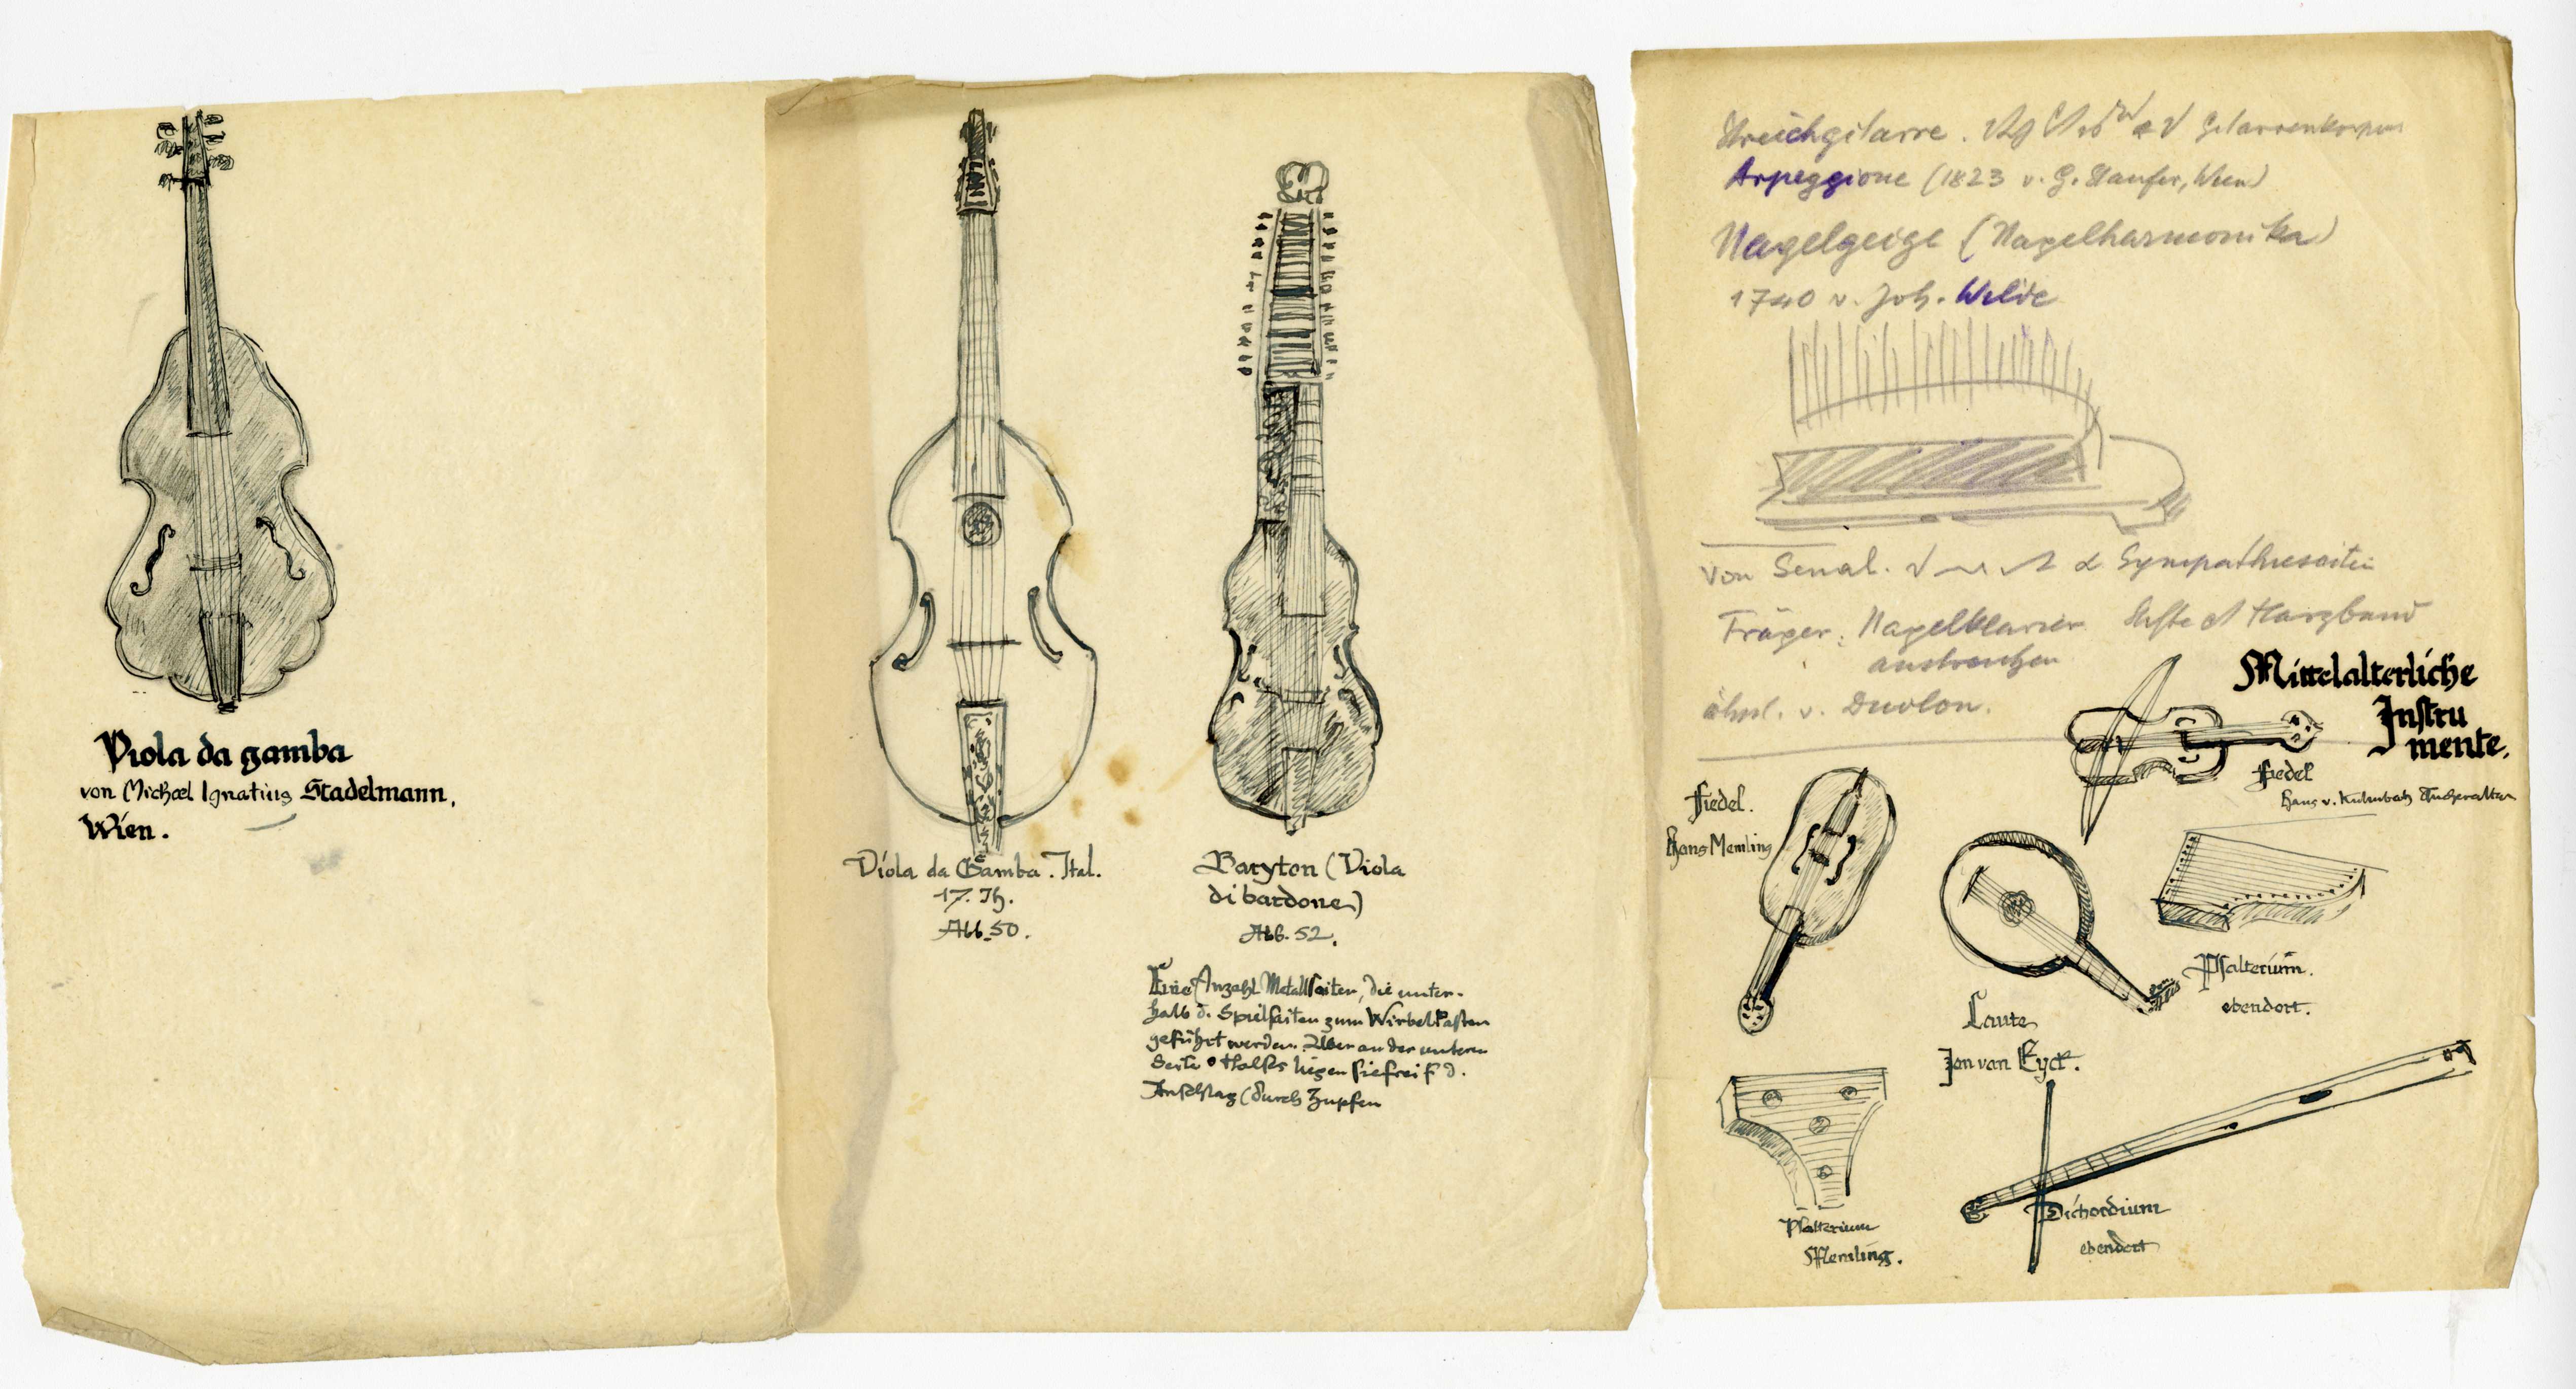 Viola da gamba
von Michael Ignatius Stadelmann,
Wien.
Viola da Gamba. Ital.
17. Jh.
Abb. 50.
Baryton (Viola
di bardone)
Abb. 52.
Eine Anzahl Metallsaiten, die unter-
halb d. Spielsaiten zum Wirbelkasten
geführt werden. Aber an der unteren
Seite Halses liegen sie frei f. d.
Anschlag (durch Zupfen
Streichgitarre. Gitarrenkorpus
Arpeggione (1823 v. G. Staufer, Wien)
Nagelgeige (Nagelharmonika)
1740 v. Joh. Wilde
von Senal. Sympathiesaiten
Träger: Nagelklavier Stifte Harzband
anstreichen
ähnl. v. Duolon.
Mittelalterliche
Instru
mente.
Fiedel
Hans v. Kulmbach Tucheraltar
Fiedel.
Hans Memling
Psalterium.
ebendort.
Laute
Jan van Eyck.
Psalterium
Memling.
Dichordium
ebendort